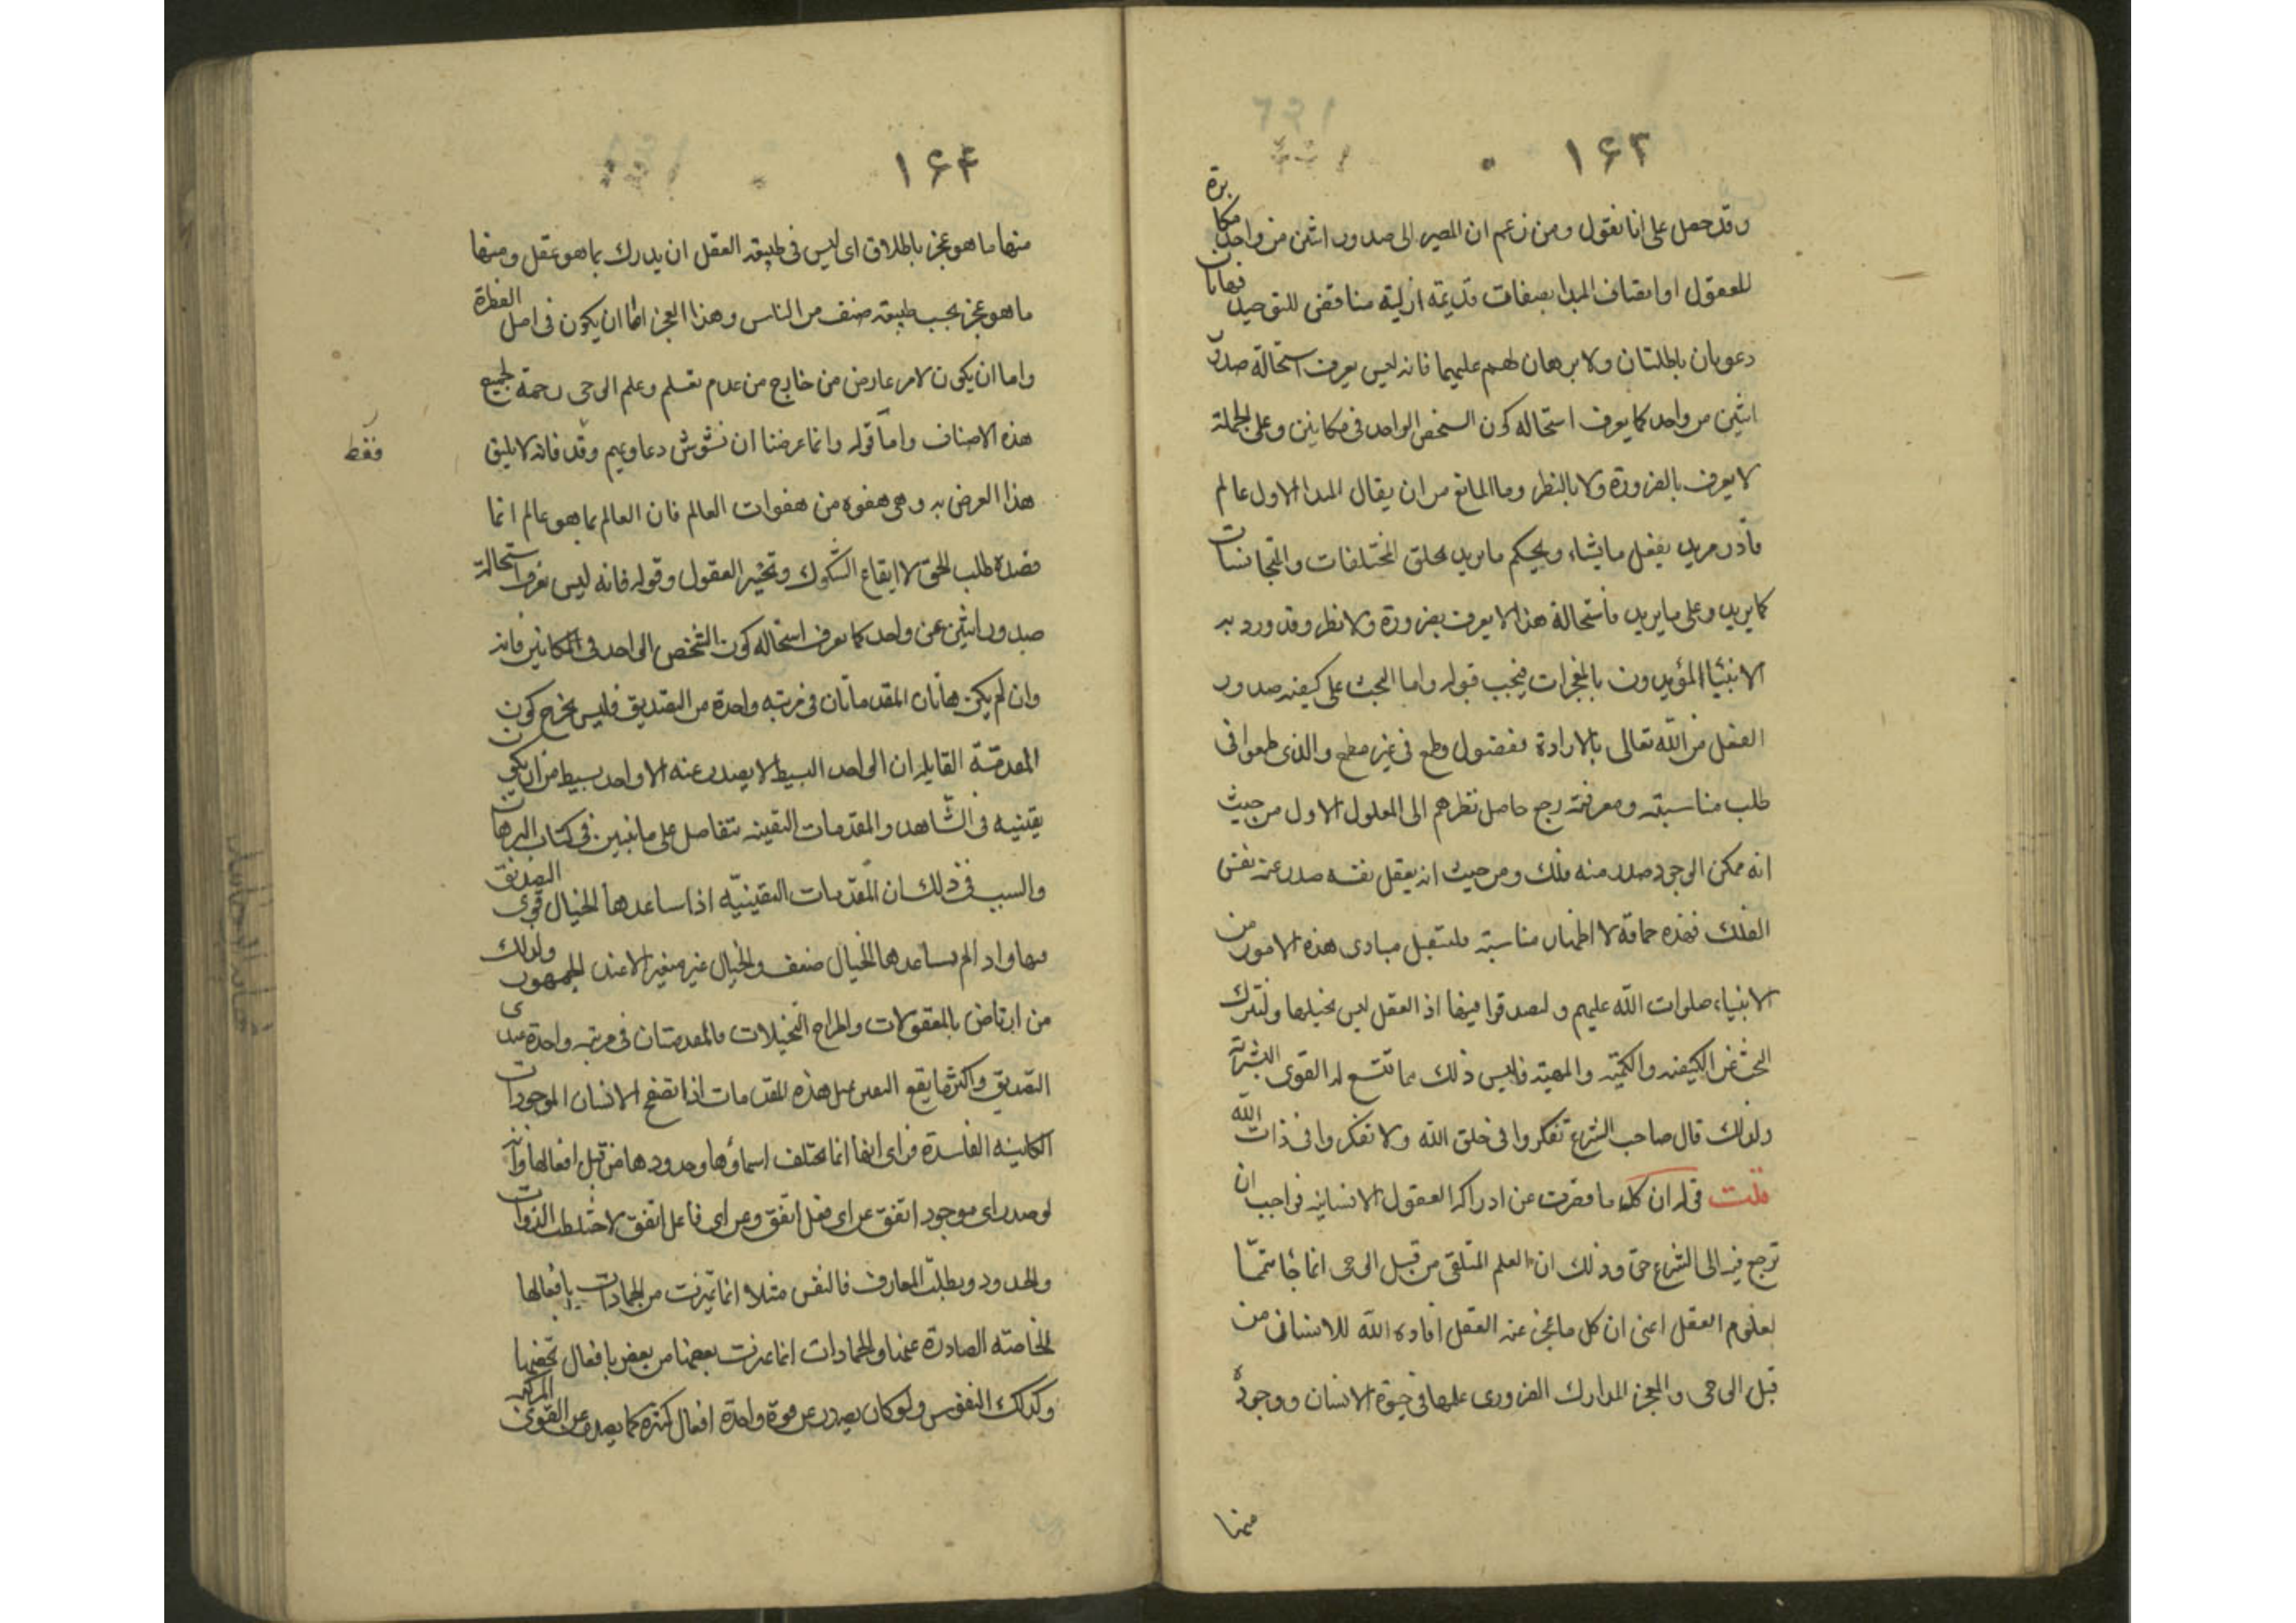 ۱۶۳
وقد حصل على انا نقول ومن زعم ان المصير الى صدور اثنين من واحد مكابرة
للعقول او اتصاف المبدا بصفات قديمة ازلية مناقض للتوحيد فهاتان
دعويان باطلتان ولا برهان لهم عليهما فانه ليس يعرف استحالة صدور
اثنين من واحد كما يعرف استحاله كون الشخص الواحد فى مكانين وعلى الجملة
لا يعرف بالضرورة ولا بالنظر وما المانع من ان يقال المبدا الاول عالم
قادر مريد يفعل ما يشاء ويحكم ما يريد يخلق المختلفات والمتجانسات
كما يريد وعلى ما يريد فاستحالة هذا لا يعرف بضرورة ولا نظر وقد ورد به
الانبيا المؤيدون بالمعجزات فيجب قبوله واما البحث على كيفيه صدور
الفعل من الله تعالى بالارادة ففضول وطمع فى غير مطمع والذى طمعوا فى
طلب مناسبته ومعرفته رجع حاصل نظرهم الى المعلول الاول من حيث
انه ممكن الوجود صدر منه فلك ومن حيث انه يعقل نفسه صدر عنه نفس
الفلك فهذه حماقة لا اظهار مناسبة فلتتقبل مبادى هذه الامور من
الانبياء صلوات الله عليهم وليصدقوا فيها اذ العقل ليس يحيلها ولنترك
البحث عن الكيفيه والكميّة والمهية فليس ذلك مما تتسع له القوى البشرية
ولذلك قال صاحب الشرع تفكروا فى خلق الله ولا تفكروا فى ذات الله
قلت قوله ان كل ما قصرت عن ادراكه العقول الانسانيه فواجب ان
نرجع فيه الى الشرع حق وذلك ان العلم المتلقى من قبل الوحى انما جاء متممّا
لعلوم العقل اعنى ان كل ما عجز عنه العقل افاده الله للانسان من
قبل الوحى والعجز المدارك الضرورى علمها فى حيوة الانسان ووجوده
منها
۱۶۴
منها ما هو عجز باطلاق اى ليس فى طبيعة العقل ان يدرك بما هو عقل ومنها
ما هو عجز بحسب طبيعة صنف من الناس وهذا العجز امّا ان يكون فى اصل الفطرة
واما ان يكون لامر عارض من خارج من عدم تعلم وعلم الوحى رحمة لجميع
هذه الاصناف واما قوله وانما غرضنا ان نشوش دعاويهم وقد فانه لا يليق
فقط
هذا الغرض به وهى هفوه من هفوات العالم فان العالم بما هو عالم انما
قصده طلب الحق لا ايقاع الشكوك وتحير العقول وقوله فانه ليس نعرف استحالة
صدور اثنين عن واحد كما نعرف استحاله كون الشخص الواحد فى المكانين فانه
وان لم يكن هاتان المقدماتان فى مرتبه واحدة من التصديق فليس يخرج كون
المقدمّة القايله ان الواحد البسيط لا يصدر عنه الا واحد بسيط من ان يكون
يقينيه فى الشاهد والمقدمات اليقينه تتفاضل على ما تبين فى كتاب البرهان
والسبب فى ذلك ان المقدّمات اليقينيّه اذا ساعدها الخيال قوى التصديق
فيها واذا لم يساعدها الخيال ضعف والخيال غير معتبر الا عند الجمهور ولذلك
من ارتاض بالمعقولات واطراح التخيلات فالمقدمتان فى مرتبه واحدة عنده
التصديق واكثر ما يقع اليقين بمثل هذه المقدمات اذا تصفح الانسان الموجودات
الكاينه الفاسدة فراى انها انما تختلف اسماؤها وحدودها من قبل افعالها وانه
لو صدر اى موجود اتفق عن اى فعل اتفق وعن اى فاعل اتفق لاختلطت الذوات
والحدود وبطلت المعارف فالنفس مثلا انما تميزت من الجمادات بافعالها
الخاصة الصادرة عنها والجمادات انما تميزت بعضها من بعض بافعال تخصها
وكذلك النفوس ولو كان يصدر عن قوة واحدة افعال كثيرة كما يصدر عن القوى المركبه